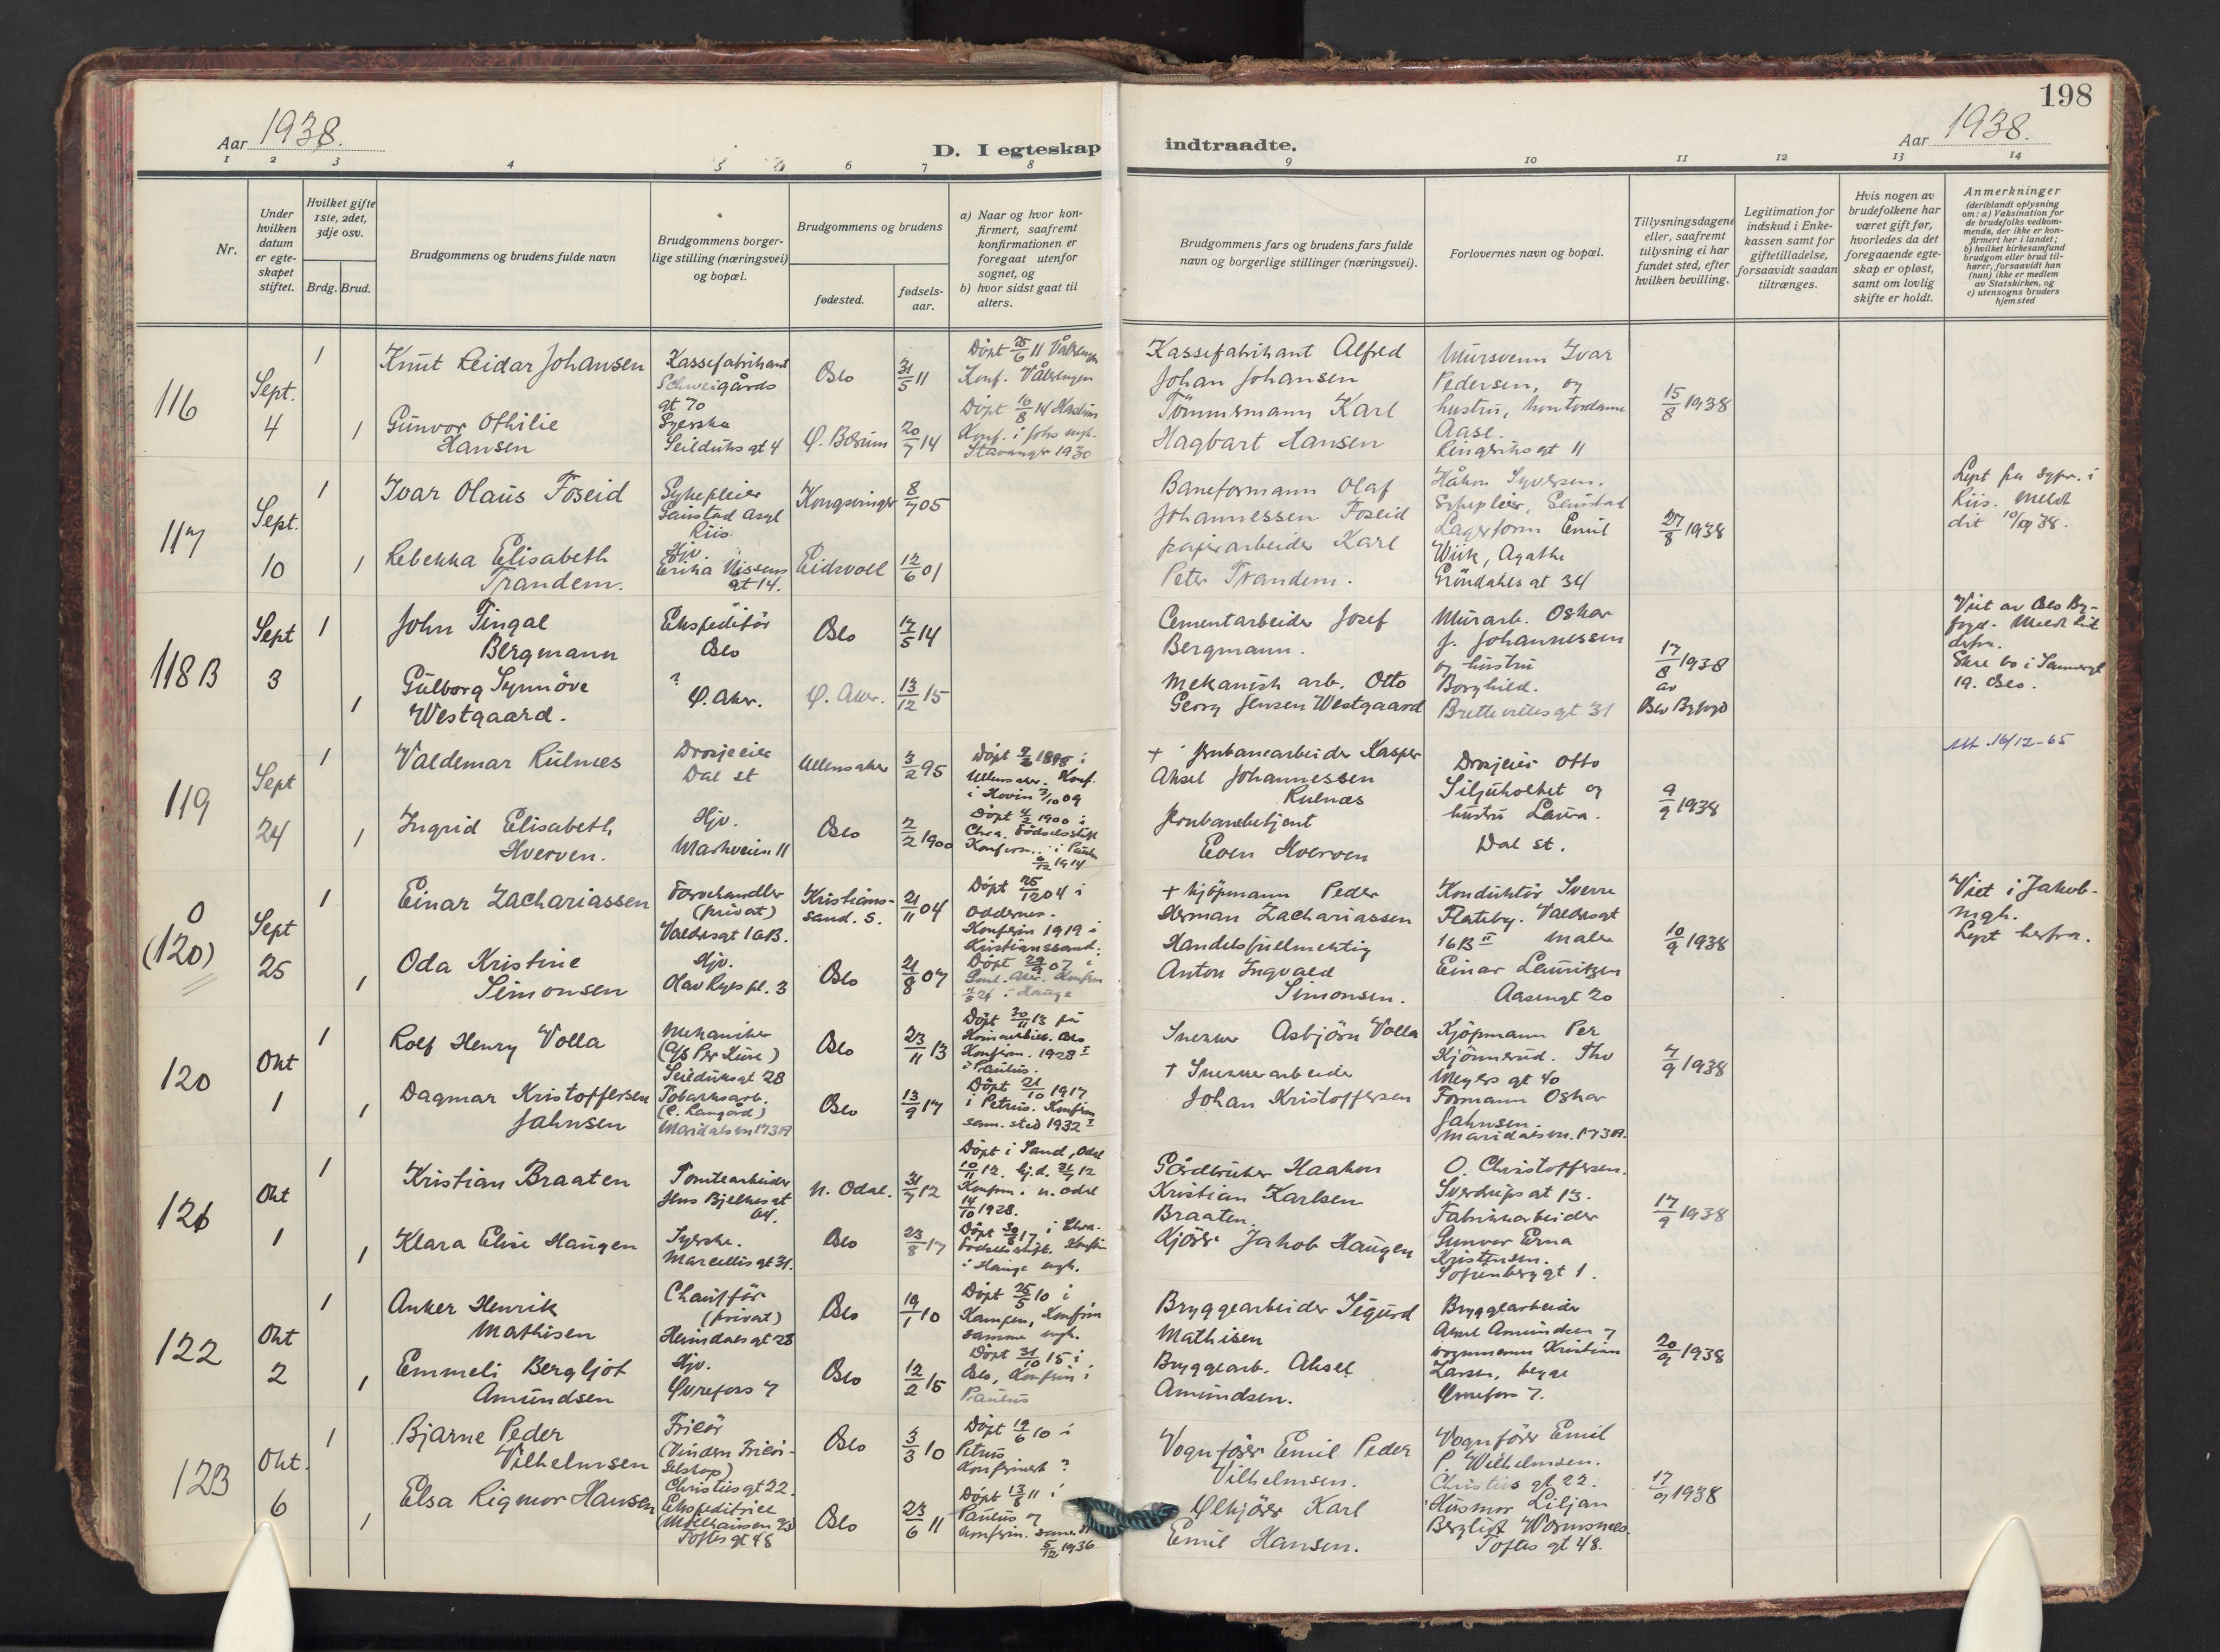 198
Aar 1938.
D. I egteskap indtraadte.
Aar 1938.
1 2 3 4 5 6 7 8 9 10 11 12 13 14
Nr.
Under hvilken datum er egteskapet stiftet.
Hvilket gifte 1ste, 2det, 3dje osv.
Brdg. Brud.
Brudgommens og brudens fulde navn
Brudgommens borgerlige stilling (næringsvei) og bopæl.
Brudgommens og brudens
fødested.
fødselsaar.
a) Naar og hvor konfirmert, saafremt konfirmationen er foregaat utenfor sognet, og
b) hvor sidst gaat til alters.
Brudgommens fars og brudens fars fulde navn og borgerlige stillinger (næringsvei).
Forlovernes navn og bopæl.
Tillysningsdagene eller, saafremt tillysning ei har fundet sted, efter hvilken bevilling.
Legitimation for indskud i Enkekassen samt for giftetilladelse, forsaavidt saadan tiltrænges.
Hvis nogen av brudefolkene har været gift før, hvorledes da det foregaaende egteskap er opløst, samt om lovlig skifte er holdt.
Anmerkninger
(deriblandt oplysning om: a) Vaksination for de brudefolks vedkommende, der ikke er konfirmert her i landet;
b) hvilket kirkesamfund brudgom eller brud tilhører, forsaavidt han (hun) ikke er medlem av Statskirken, og
c) utensogns bruders hjemsted
116
Sept. 4
1
Knut Reidar Johansen
Kassefabrikant
Schweigårds
gt 70
Oslo
31/5 11
Døpt 25/6 11 Vålerengen
Konf. Vålerengen
Kassefabrikant Alfred
Johan Johansen
Mursvenn Ivar
Pedersen, og
hustru, kontordame
Aase.
Ringeriksgt 11
15/8 1938
1
Gunvor Othilie
Hansen
Syerske
Seilduksgt 4
Ø. Bærum
20/7 14
Døpt 16/8 14
Stavanger 1930
Tømmermann Karl
Hagbart Hansen
117
Sept. 10
1
Ivar Olaus Foseid
Sykepleier
Gaustad Asyl
Riis
Kongsvinger
8/7 05
Baneformann Olaf
Johannessen Foseid
Håkon Syversen.
Sykepleier, Gaustad
Lagerform Emil
Wiik, Agathe
Gröndahls gt 34
27/8 1938
Lyst fra sogpr. i
Riis. Meldt
dit 10/9 38.
1
Rebekka Elisabeth
Trandem.
Hjv.
Erika Nissens
gt 14.
Eidsvoll
12/6 01
papirarbeider Karl
Peter Trandem.
118B
Sept 3
1
John Tingal
Bergmann
Ekspeditør
Oslo
Oslo
17/5 14
Cementarbeider Josef
Bergmann.
Murarb. Oskar
J. Johannessen
og hustru
Borghild.
gt 31
17/8 1938
av
Oslo Byfogd
Viet av Oslo By-
fogd. Meldt hit
derfra.
Skal bo i
19. Oslo.
1
Gulborg Synnöve
Westgaard.
?
Ø. Aker.
Ø. Aker.
13/12 15
Mekanisk arb. Otto
Georg Jensen Westgaard
119
Sept 24
1
Valdemar Rulnæs
Drosjeeier
Dal st
Ullensaker
3/2 95
Døpt 1895 i
Ullensaker. Konf.
i Hovin 3/10 09
+ Jernbanearbeider Kasper
Aksel Johannessen
Rulnæs
Drosjeeier Otto
Siljuholtet og
hustru Laura.
Dal st.
9/9 1938
Att. 16/12-65
1
Ingrid Elisabeth
Hverven.
Hjv.
Markveien 11
Oslo
2/2 1900
Døpt 1900 i
Chra. Fødselsstift
Konform. i Paulus
1914
Jernbanebetjent
Even Hverven
0
(120)
Sept 25
1
Einar Zachariassen
Farvehandler
(privat)
Valdresgt 16B.
Kristians-
sand. S.
21/11 04
Døpt 25/12 04 i
Oddernes.
Konfirm 1919 i
Kristianssand.
+ kjöpmann Peder
Herman Zachariassen
Konduktör Sverre
Flateby. Valdresgt
16B II Maler
Einar Lauritzen
Aasengt 20
10/9 1938
Viet i Jakob
mgh.
Lyst herfra.
1
Oda Kristine
Simonsen
Hjv.
Olav Ryes pl. 3
Oslo
21/8 07
Døpt 29/9 07 i
Gml. Aker. Konfirm
i Hauge
Handelsfullmektig
Anton Ingvald
Simonsen.
120
Okt 1
1
Rolf Henry Volla
Mekaniker
(A/S Per Kure)
Seilduksgt 28
Oslo
23/11 13
Døpt 30/11 13 på
Oslo
Konfirm. 1928
i Paulus.
Snekker Asbjörn Volla
Kjöpmann Per
Kjönnerud. Thv
Meyers gt 40
Formann Oskar
Jahnsen.
Maridalsvn. 173A.
7/9 1938
1
Dagmar Kristoffersen
Jahnsen
Tobakksarb.
(C. Langård)
Maridalsvn 173A
Oslo
13/9 17
Døpt 21/10 1917
i Petrus. Konfirm
sam. sted 1932
+ Snekkerarbeider
Johan Kristoffersen
121
Okt 1
1
Kristian Braaten
Tomtearbeider
Jens Bjelkes gt
64.
N. Odal.
31/7 12
Døpt i Sand, Odal
10/11 12. hj.d. 31/7 12
Konfirm. n. Odal
14/10 1928.
Gårdbruker Haakon
Kristian Karlsen
Braaten.
O. Christoffersen.
Sverdrups gt 13.
Fabrikkarbeider
Gunvor Erna
Kristensen.
Sofienberggt 1.
17/9 1938
1
Klara Elise Haugen
Syerske.
Marcellis gt 31.
Oslo
23/8 17
Døpt 30/8 17 i Chra.
Fødselsstift. Konfir
i Hauge mgh.
Kjörer Jakob Haugen
122
Okt 2
1
Anker Henrik
Mathisen
Chauffør
(privat)
Heimdalsgt 28
Oslo
19/1 10
Døpt 25/5 10 i
Kampen, Konfirm
samme mgh.
Bryggearbeider Sigurd
Mathisen
Bryggearbeider
Aksel Amundsen og
vognmann Kristian
Larsen, begge
Øvrefoss 7.
20/9 1938
1
Emmeli Bergljot
Amundsen
Hjv.
Øvrefoss 7
Oslo
12/2 15
Døpt 31/10 15 i
Oslo, Konfirm i
Paulus
Bryggearb. Aksel
Amundsen.
123
Okt. 6
1
Bjarne Peder
Vilhelmsen
Frisør
(Vinderen Frisör-
selskap)
Christies gt 22.
Oslo
3/3 10
Døpt 19/6 10 i
Petrus
Konfirmert ?
Vognfører Emil Peder
Vilhelmsen.
Vognfører Emil
P. Wilhelmsen.
Christies gt 22.
Husmor Liljan
Bergliot
Toftes gt 48.
17/9 1938
1
Elsa Rigmor Hansen
Ekspeditrise
(Möllhausen)
Toftes gt 48
Oslo
23/6 11
Døpt 13/8 11 i
Paulus og
konfirm. samme st
5/12 1936
Ølkjörer Karl
Emil Hansen.